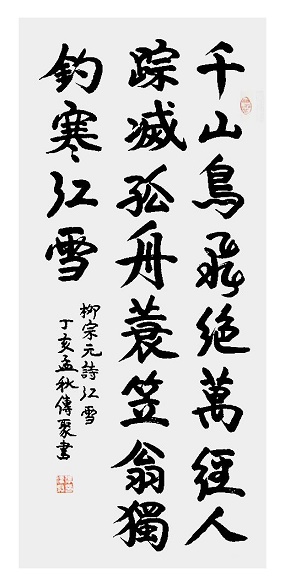 千山鳥飛絶萬徑人
踪滅孤舟蓑笠翁獨
釣寒江雪
柳宗元詩江雪
丁亥孟秋傳聚書